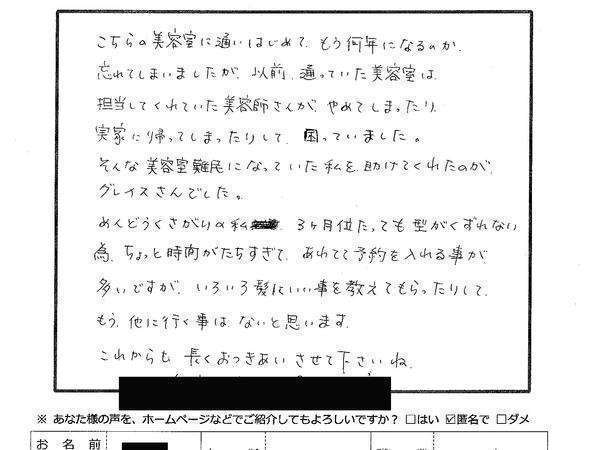 こちらの美容室に通いはじめて、もう何年になるのか、
忘れてしまいましたが、以前、通っていた美容室は、
担当してくれていた美容師さんが、やめてしまったり、
実家に帰ってしまったりして、困っていました。
そんな美容室難民になっていた私を、助けてくれたのが、
グレイスさんでした。
めんどうくさがりの私、3ヶ月位たっても型がくずれない
為、ちょっと時間がたちすぎて、あわてて予約を入れる事が
多いですが、いろいろ髪にいい事を教えてもらったりして、
もう、他に行く事はないと思います。
これからも長くおつきあいさせて下さいね。
※ あなた様の声を、ホームページなどでご紹介してもよろしいですか？ □はい ☑匿名で □ダメ
お名前